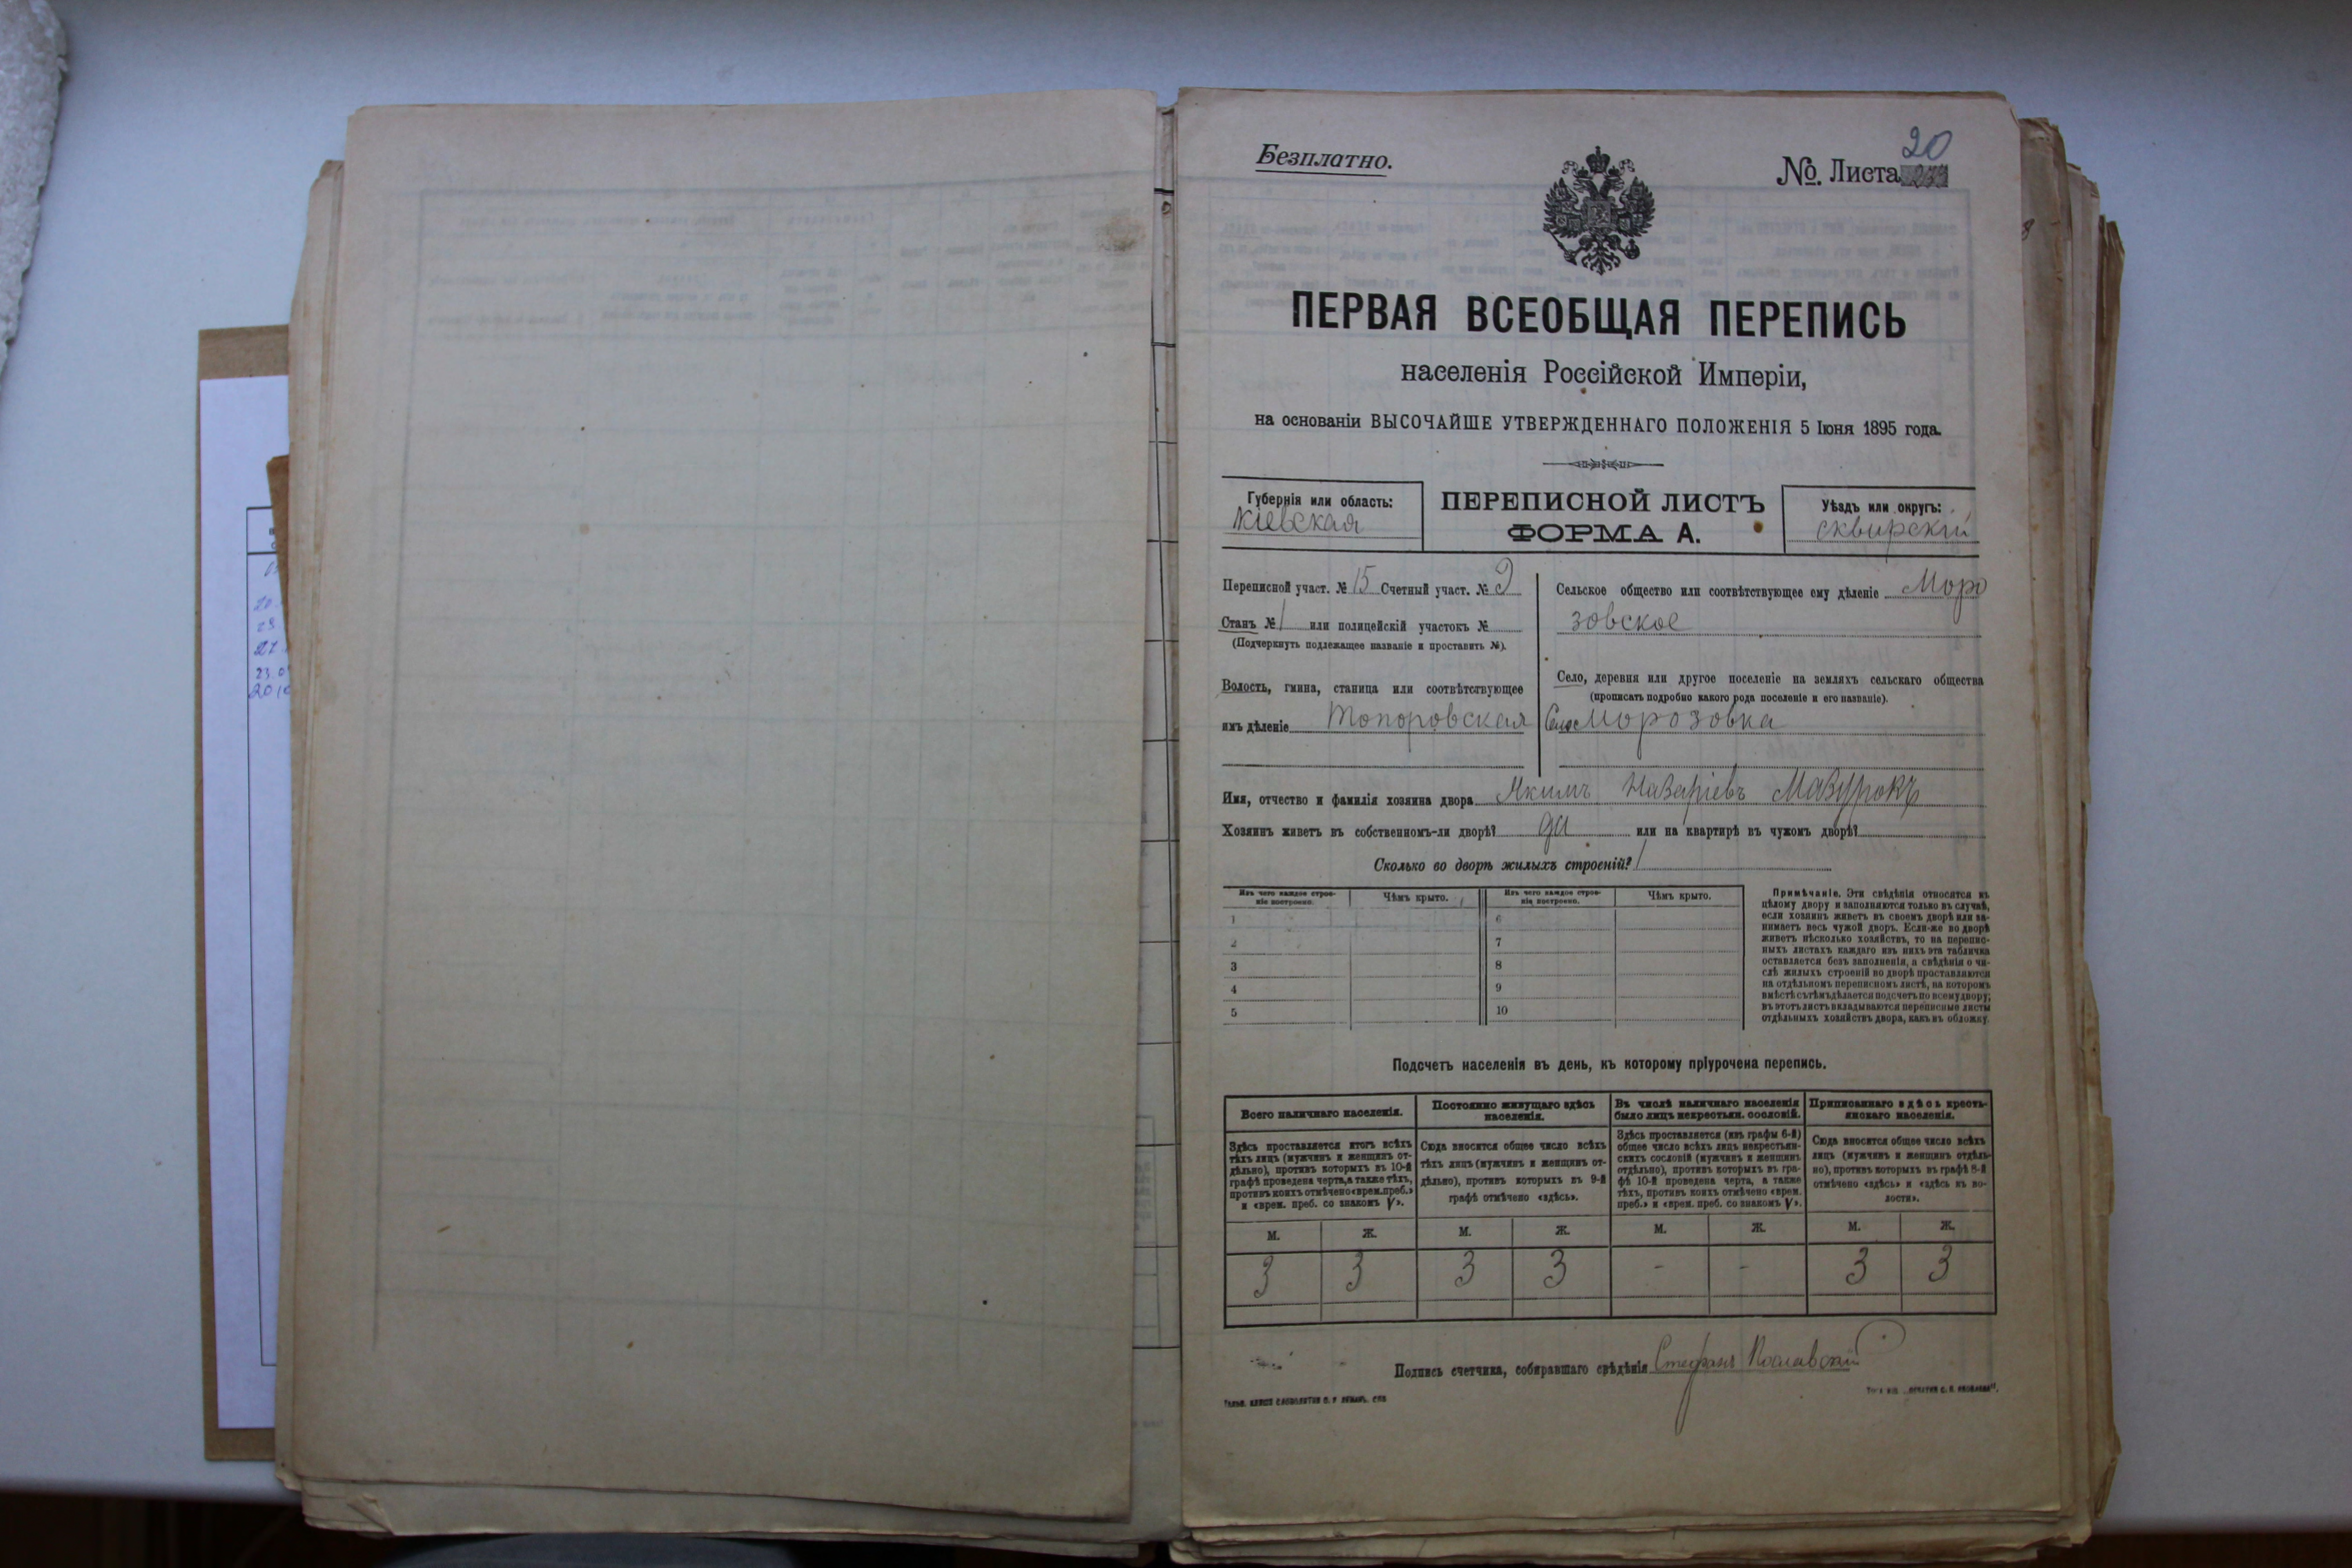 Безплатно.
20
№. Листа
ПЕРВАЯ ВСЕОБЩАЯ ПЕРЕПИСЬ
населенія Россійской Имперіи,
на основаніи ВЫСОЧАЙШЕ УТВЕРЖДЕННАГО ПОЛОЖЕНІЯ 5 Іюня 1895 года.
Губернія или область:
Кіевская
ПЕРЕПИСНОЙ ЛИСТЪ
ФОРМА А.
Уѣздъ или округъ:
сквирскій
Переписной участ. № 15 Счетный участ. № 9
Станъ № 1 или полицейскій участокъ №
(Подчеркнуть подлежащее названіе и проставить №).
Волость, гмина, станица или соотвѣтствующее
имъ дѣленіе Топоровская
Сельское общество или соотвѣтствующее ему дѣленіе Моро
зовское
Село, деревня или другое поселеніе на земляхъ сельскаго общества
(прописать подробно какого рода поселеніе и его названіе).
Село Морозовка
Имя, отчество и фамилія хозяина двора Якимъ Назаріевъ Мазурокъ
Хозяинъ живетъ въ собственномъ-ли дворѣ? да или на квартирѣ въ чужомъ дворѣ?
Сколько во дворѣ жилыхъ строеній? 1
Изъ чего каждое строе-
ніе построено.
Чѣмъ крыто.
Изъ чего каждое строе-
ніе построено.
Чѣмъ крыто.
1
2
3
4
5
6
7
8
9
10
Примѣчаніе. Эти свѣдѣнія относятся къ
цѣлому двору и заполняются только въ случаѣ,
если хозяинъ живетъ въ своемъ дворѣ или за-
нимаетъ весь чужой дворъ. Если-же во дворѣ
живетъ нѣсколько хозяйствъ, то на перепис-
ныхъ листахъ каждаго изъ нихъ эта табличка
оставляется безъ заполненія, а свѣдѣнія о чи-
слѣ жилыхъ строеній во дворѣ проставляются
на отдѣльномъ переписномъ листѣ, на которомъ
вмѣстѣ съ тѣмъ дѣлается подсчетъ по всему двору;
въ этотъ листъ вкладываются переписные листы
отдѣльныхъ хозяйствъ двора, какъ въ обложку.
Подсчетъ населенія въ день, къ которому пріурочена перепись.
Всего наличнаго населенія.
Здѣсь проставляется итогъ всѣхъ
тѣхъ лицъ (мужчинъ и женщинъ от-
дѣльно), противъ которыхъ въ 10-й
графѣ проведена черта, а также тѣхъ,
противъ коихъ отмѣчено «врем. преб.»
и «врем. преб. со знакомъ V».
Постоянно живущаго здѣсь
населенія.
Сюда вносится общее число всѣхъ
тѣхъ лицъ (мужчинъ и женщинъ от-
дѣльно), противъ которыхъ въ 9-й
графѣ отмѣчено «здѣсь».
Въ числѣ наличнаго населенія
было лицъ некрестьян. сословій.
Здѣсь проставляется (изъ графы 6-й)
общее число всѣхъ лицъ некрестьян-
скихъ сословій (мужчинъ и женщинъ
отдѣльно), противъ которыхъ въ гра-
фѣ 10-й проведена черта, а также
тѣхъ, противъ коихъ отмѣчено «врем.
преб.» и «врем. преб. со знакомъ V».
Приписаннаго здѣсь кресть-
янскаго населенія.
Сюда вносится общее число всѣхъ
лицъ (мужчинъ и женщинъ отдѣль-
но), противъ которыхъ въ графѣ 8-й
отмѣчено «здѣсь» и «здѣсь въ во-
лости».
М. Ж. М. Ж. М. Ж. М. Ж.
3 3 3 3 - - 3 3
Подпись счетчика, собиравшаго свѣдѣнія Стефанъ